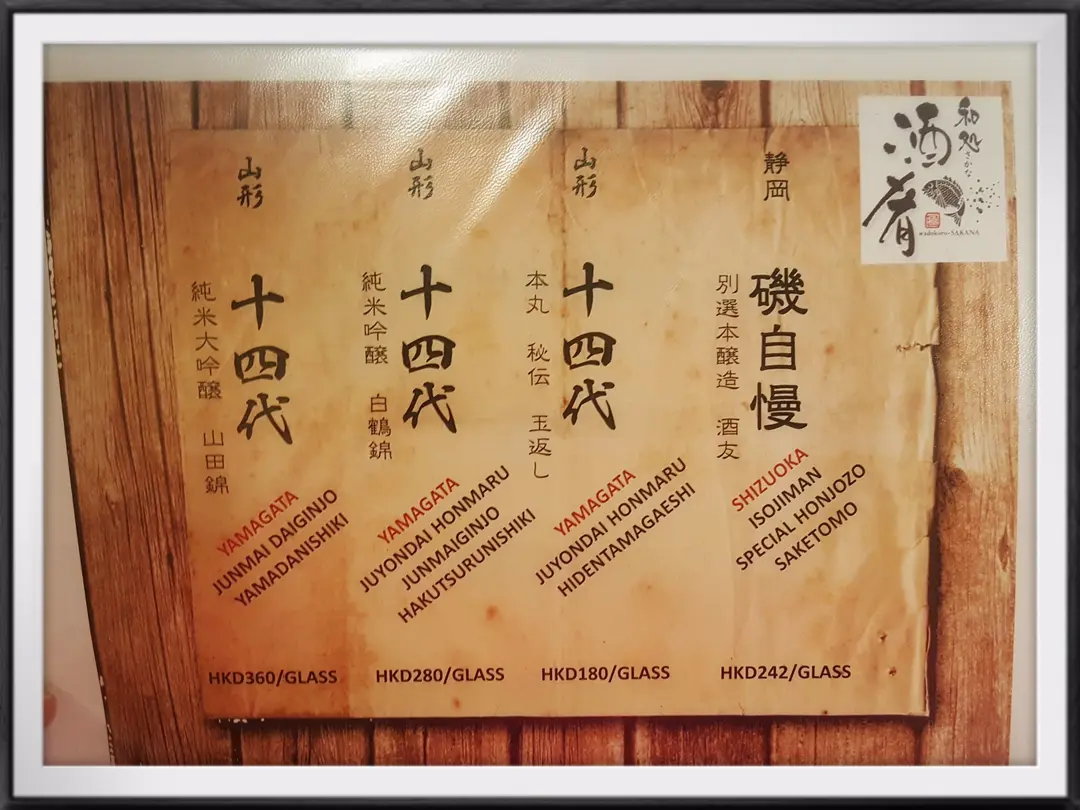 山形
十四代
純米大吟醸 山田錦
YAMAGATA
JUNMAI DAIGINJO
YAMADANISHIKI
HKD360/GLASS
山形
十四代
純米吟醸 白鶴錦
YAMAGATA
JUYONDAI HONMARU
JUNMAIGINJO
HAKUTSURUNISHIKI
HKD280/GLASS
山形
十四代
本丸 秘伝 玉返し
YAMAGATA
JUYONDAI HONMARU
HIDENTAMAGAESHI
HKD180/GLASS
静岡
磯自慢
別選本醸造 酒友
SHIZUOKA
ISOJIMAN
SPECIAL HONJOZO
SAKETOMO
HKD242/GLASS
和処
さかな
酒肴
wadokoro-SAKANA